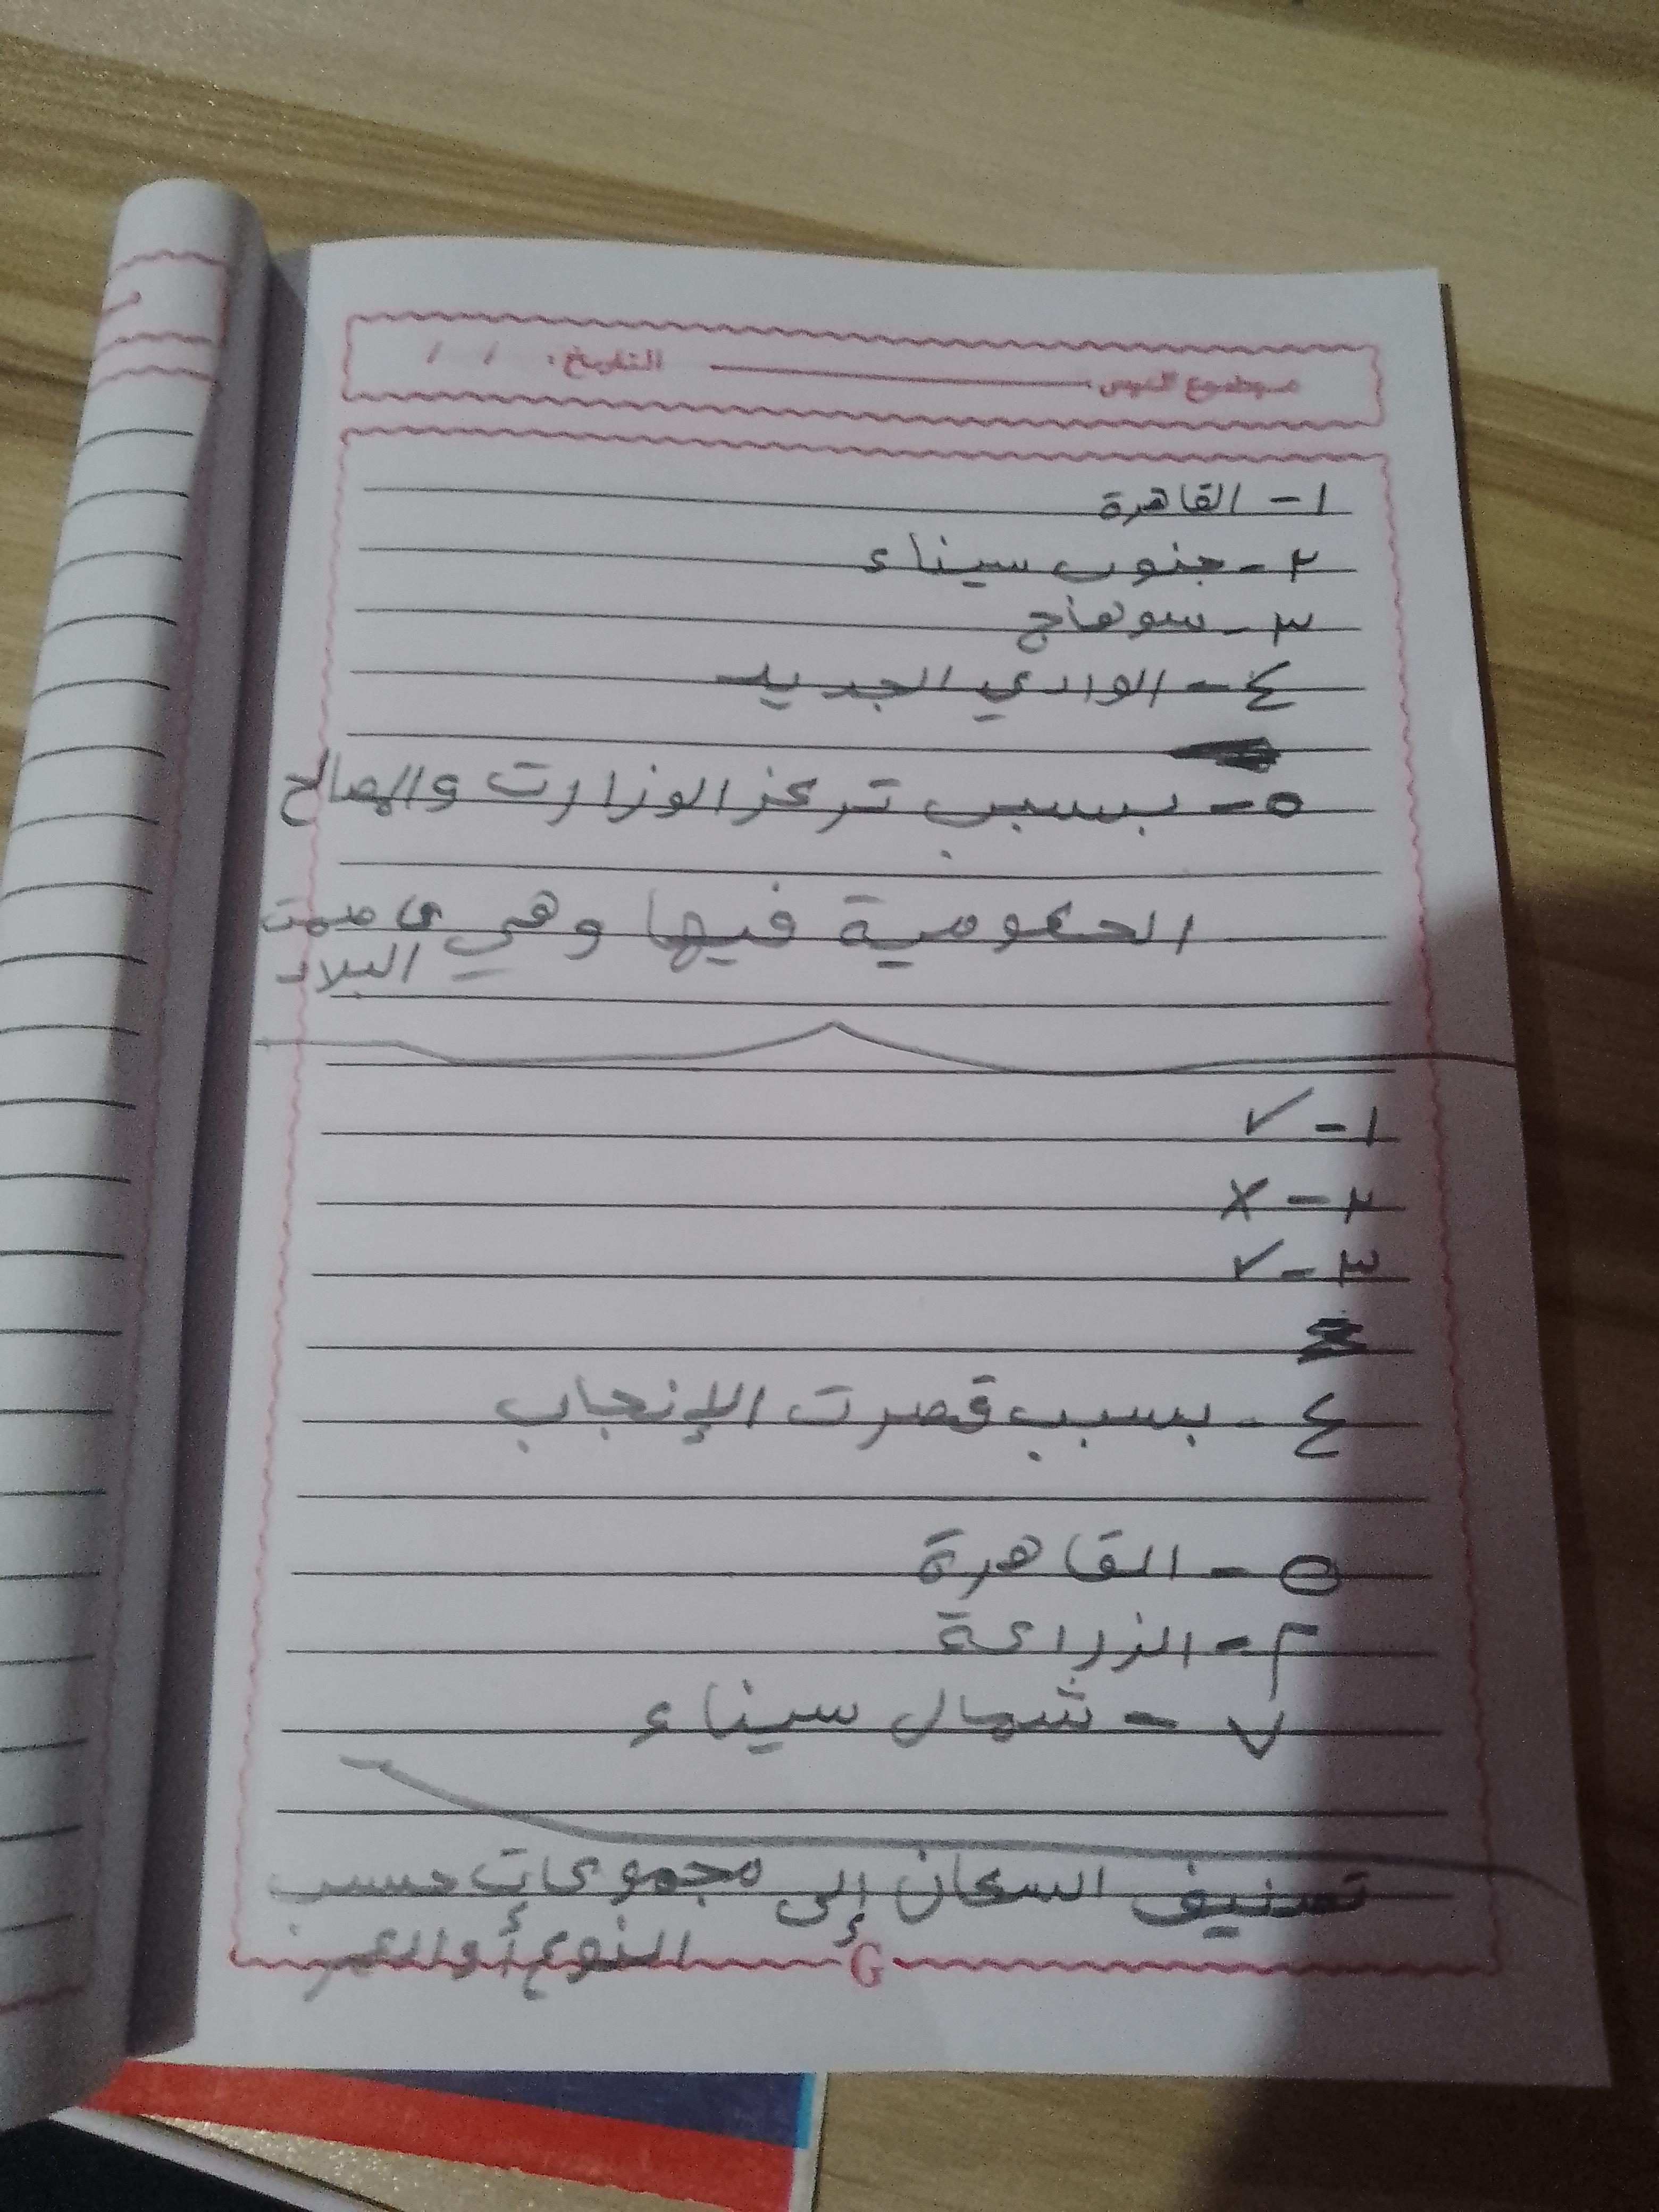 موضوع الدرس: التاريخ: / /
١- القاهرة
٢- جنوب سيناء
٣- سوهاج
٤- الوادي الجديد
٥- بسبب تركز الوزارت والمصالح
الحكومية فيها وهي عاصمت
البلاد
١- ✓
٢- X
٣- ✓
٤- بسبب قصرت الإنجاب
٥- القاهرة
٦- الزراعة
٧- شمال سيناء
تصنيف السكان إلى مجموعات حسب
النوع أو العمر
G